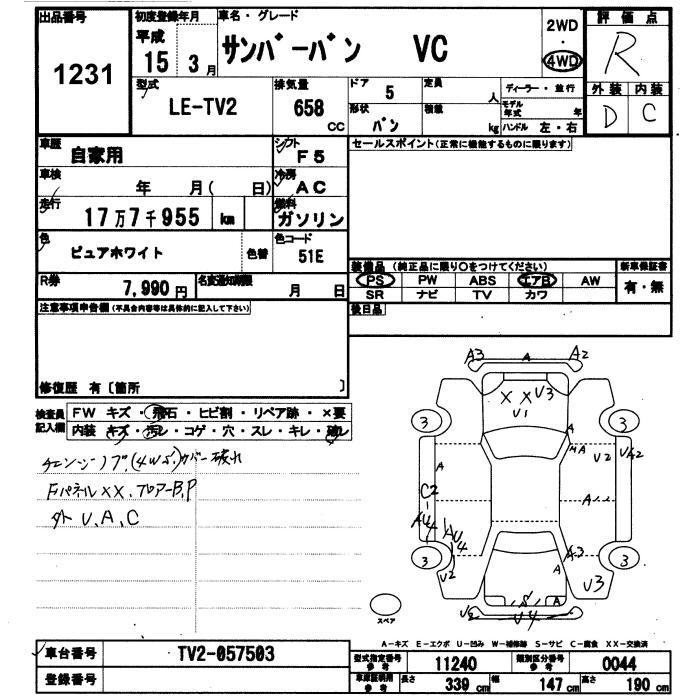 出品番号 初度登録年月 車名・グレード 2WD 評価点
1231 平成 15年 3月 サンバーバン VC ・ 4WD R
型式 排気量 ドア 5 定員 人 ディーラー・並行 外装 内装
LE-TV2 658 CC 形状 バン 積載 kg モデル年式 年 D C
ハンドル 左・右
車歴 自家用 シフト F5 セールスポイント(正常に機能するものに限ります)
車検 年 月( 日) 冷房 AC
走行 17万7千955 km 燃料 ガソリン
色 ピュアホワイト 色替 色コード 51E
装備品(純正品に限り○をつけてください) 新車保証書
R券 7,990円 名変通知期限 月 日 PS PW ABS エアB AW 有・無
SR ナビ TV カワ
注意事項申告欄(不具合内容等は具体的に記入して下さい) 後日品
修復歴 有〔箇所 〕
検査員記入欄 FW キズ・飛石・ヒビ割・リペア跡・×要
内装 キズ・汚レ・コゲ・穴・スレ・キレ・破レ
チェンジノブ(4WS.)カバー破れ
FパネルXX、フロアーB,P
外 U、A、C
A3 A A2
X X U3
U1
3 A 3
A A U2 UA2
A
C2 A
A U4 A U4
3 A3 3
U2 U3
S A
U2 U4
スペア
A-キズ E-エクボ U-凹み W-補修跡 S-サビ C-腐食 XX-交換済
車台番号 TV2-057503 型式指定番号 参考 11240 類別区分番号 参考 0044
登録番号 車庫証明用 参考 長さ 339cm 幅 147cm 高さ 190cm